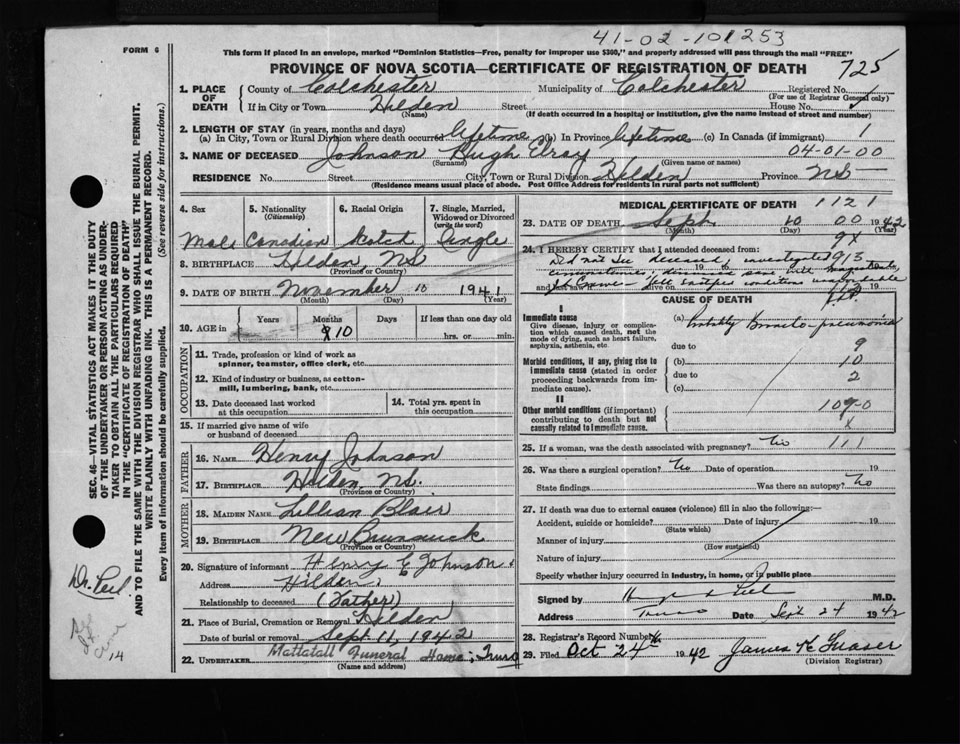 41-02-101253
FORM 6
This form if placed in an envelope, marked "Dominion Statistics—Free, penalty for improper use $300," and properly addressed will pass through the mail "FREE"
PROVINCE OF NOVA SCOTIA—CERTIFICATE OF REGISTRATION OF DEATH 725
1. PLACE OF DEATH County of Colchester Municipality of Colchester Registered No.
(For use of Registrar General only)
If in City or Town Hilden Street House No.
(Name) (If death occurred in a hospital or institution, give the name instead of street and number)
2. LENGTH OF STAY (in years, months and days)
(a) In City, Town or Rural Division where death occurred lifetime (b) In Province lifetime (c) In Canada (if immigrant) 1
3. NAME OF DECEASED Johnson Hugh 04-01-00
(Surname) (Given name or names)
RESIDENCE No. Street City, Town or Rural Division Hilden Province NS
(Residence means usual place of abode. Post Office Address for residents in rural parts not sufficient)
4. Sex 5. Nationality (Citizenship) 6. Racial Origin 7. Single, Married, Widowed or Divorced (write the word)
Male Canadian Scotch Single
8. BIRTHPLACE Hilden, NS
(Province or Country)
9. DATE OF BIRTH November 10 1941
(Month) (Day) (Year)
10. AGE in Years Months Days If less than one day old
10 hrs. or min.
OCCUPATION
11. Trade, profession or kind of work as spinner, teamster, office clerk, etc.
12. Kind of industry or business, as cotton-mill, lumbering, bank, etc.
13. Date deceased last worked at this occupation 14. Total yrs. spent in this occupation
15. If married give name of wife or husband of deceased
FATHER
16. NAME Henry Johnson
17. BIRTHPLACE Hilden, NS.
(Province or Country)
MOTHER
18. MAIDEN NAME Lillian Blair
19. BIRTHPLACE New Brunswick
(Province or Country)
20. Signature of informant Henry E Johnson
Address Hilden,
Relationship to deceased (Father)
21. Place of Burial, Cremation or Removal Hilden
Date of burial or removal Sept. 11, 1942
22. UNDERTAKER Mattatall Funeral Home, Truro
(Name and address)
MEDICAL CERTIFICATE OF DEATH 1121
23. DATE OF DEATH Sept. 10 00 1942
(Month) (Day) (Year)
9X
24. I HEREBY CERTIFY that I attended deceased from:
Did not see deceased, investigated 913
and last saw h alive on 19
CAUSE OF DEATH
I
Immediate cause
Give disease, injury or complication which caused death, not the mode of dying, such as heart failure, asphyxia, asthenia, etc.
(a) Probably Broncho-pneumonia
due to 9
Morbid conditions, if any, giving rise to immediate cause (stated in order proceeding backwards from immediate cause).
(b) 10
due to 2
(c)
II
Other morbid conditions (if important) contributing to death but not causally related to immediate cause.
109-0
X
25. If a woman, was the death associated with pregnancy? No 111
26. Was there a surgical operation? No Date of operation 19
State findings Was there an autopsy? No
27. If death was due to external causes (violence) fill in also the following:—
Accident, suicide or homicide? Date of injury 19
(State which)
Manner of injury
(How sustained)
Nature of injury
Specify whether injury occurred in industry, in home, or in public place
Signed by M.D.
Address Truro Date Sept 24 1942
28. Registrar's Record Number
29. Filed Oct 24th 1942 James K Fraser
(Division Registrar)
SEC. 46—VITAL STATISTICS ACT MAKES IT THE DUTY
OF THE UNDERTAKER OR PERSON ACTING AS UNDERTAKER TO OBTAIN ALL THE PARTICULARS REQUIRED
IN THE "CERTIFICATE OF REGISTRATION OF DEATH"
AND TO FILE THE SAME WITH THE DIVISION REGISTRAR WHO SHALL ISSUE THE BURIAL PERMIT.
WRITE PLAINLY WITH UNFADING INK. THIS IS A PERMANENT RECORD.
Every item of information should be carefully supplied. (See reverse side for instructions.)
Dr. Peel
14